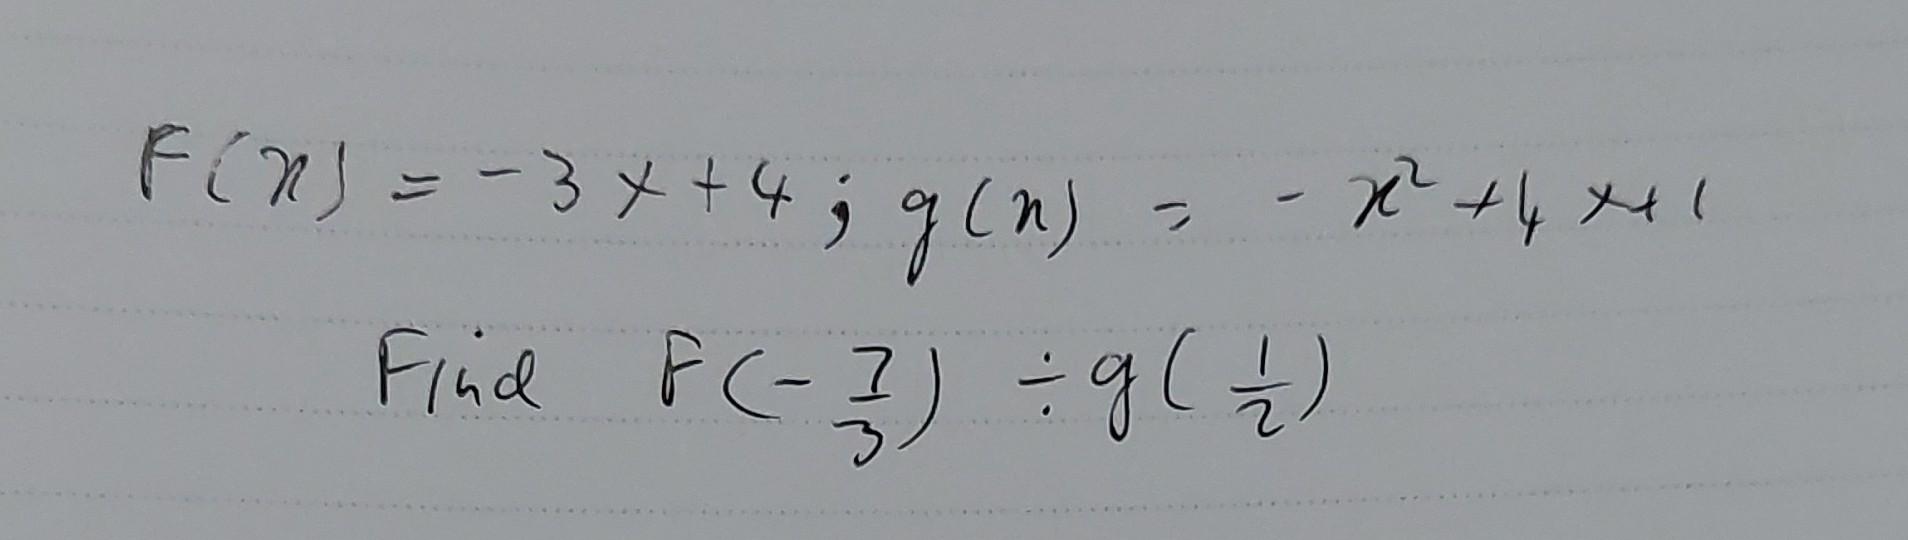 F(x) = -3x+4; g(x) = -x²+4x+1
Find F(-7/3) ÷ g(1/2)